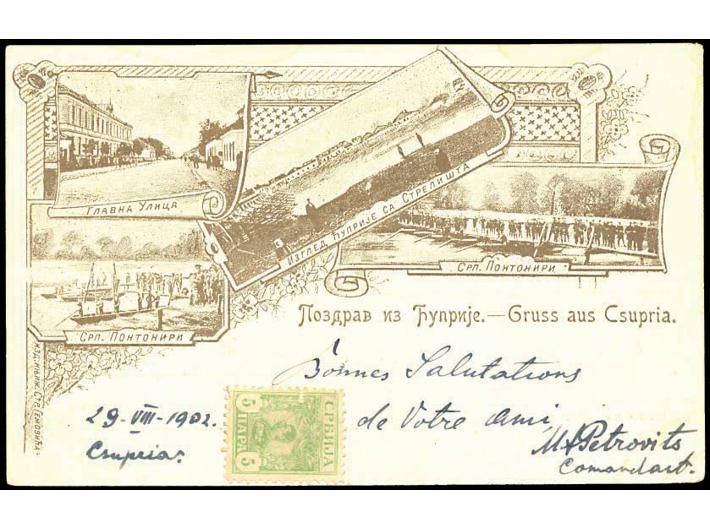 Главна Улица
Изглед Ћуприје са Стрелишта
Срп. Понтонири
Срп. Понтонири
Поздрав из Ћуприје.—Gruss aus Csupria.
Bonnes Salutations
de Votre Ami
Petrovits
Comandant.
29-VIII-1902.
Csupria.
СРБИЈА
5 ПАРА 5